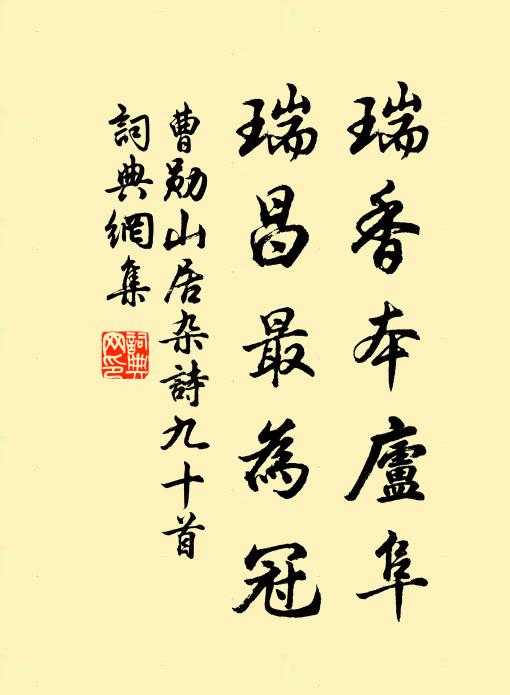 瑞香本廬阜
瑞昌最為冠
曹勛山居杂詩九十首
詞典網集
詞典网印